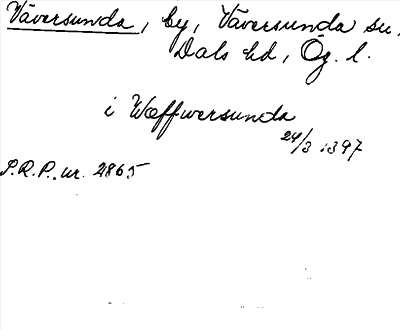 Väversunda, by, Väversunda sn,
Dals hd, Ög. l.
i Wæffwersunda
24/3 1397
S.R.P. nr. 2865